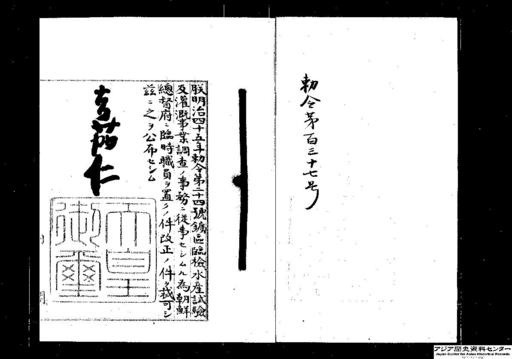 勅令第百三十七号
朕明治四十五年勅令第二十四號鑛區臨檢水産試驗
及灌漑事業調査ノ事務ニ從事セシムル為朝鮮
總督府ニ臨時職員ヲ置クノ件改正ノ件ヲ裁可シ
茲ニ之ヲ公布セシム
嘉仁
天皇御璽
アジア歴史資料センター
Japan Center for Asian Historical Records